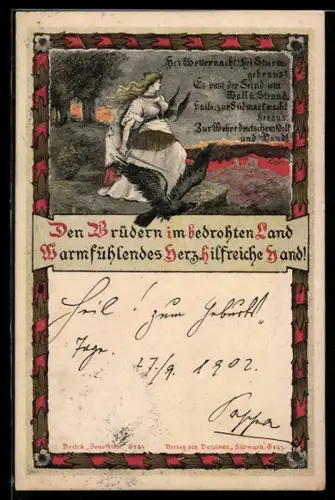 Hei Wetternacht! Hei Sturm-
gebraus!
Es rast der Feind um
Wall u. Strand,
Hallo, zur Südmarkwacht
heraus,
Zur Wehr deutschem Volk
und Land!
Den Brüdern im bedrohten Land
Warmfühlendes Herz, hilfreiche Hand!
Heil! zum Geburts
Tage.
27./9. 1902.
Druck „Senefelder“, Graz.
Verlag des Vereines „Südmark“, Graz.